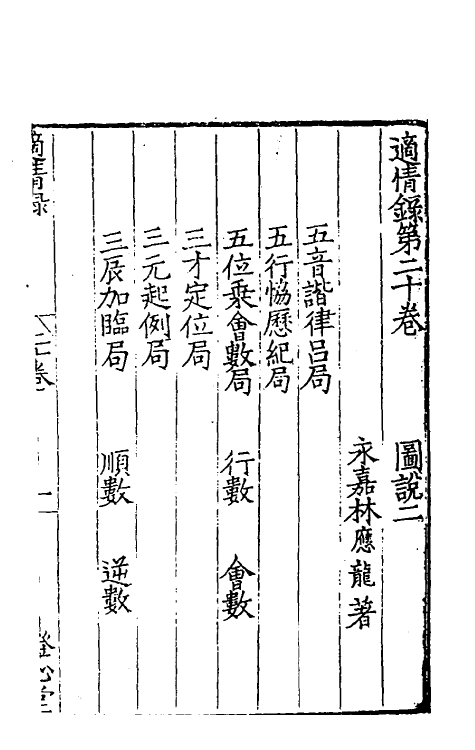 適情錄第二十卷　圖說二
永嘉林應龍著
五音諧律呂局
五行恊曆紀局
五位乘會數局　行數　會數
三才定位局
三元起例局
三辰加臨局　順數　逆數
適情录
二十卷
一